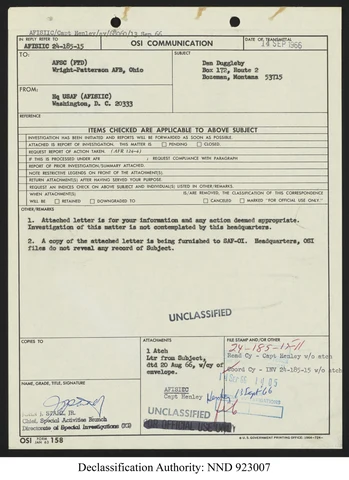 AFISIIC/Capt Henley/
IN REPLY REFER TO
AFISIIC 24-185-15
OSI COMMUNICATION
DATE OF TRANSMITTAL
14 SEP 1966
TO:
AFSC (FTD)
Wright-Patterson AFB, Ohio
SUBJECT
Dan Duggleby
Box 172, Route 2
Bozeman, Montana 53715
FROM:
Hq USAF (AFISIIC)
Washington, D. C. 20333
REFERENCE
ITEMS CHECKED ARE APPLICABLE TO ABOVE SUBJECT
INVESTIGATION HAS BEEN INITIATED AND REPORTS WILL BE FORWARDED AS SOON AS POSSIBLE.
ATTACHED IS REPORT OF INVESTIGATION. THIS MATTER IS: PENDING CLOSED.
REQUEST REPORT OF ACTION TAKEN.
IF THIS IS PROCESSED UNDER AFR ; REQUEST COMPLIANCE WITH PARAGRAPH
REPORT OF PRIOR INVESTIGATION/SUMMARY ATTACHED.
NOTE RESTRICTIVE LEGENDS ON FRONT OF THE ATTACHMENT(S).
RETURN ATTACHMENT(S) AFTER HAVING SERVED YOUR PURPOSE.
REQUEST AN INDICES CHECK ON ABOVE SUBJECT AND INDIVIDUAL(S) LISTED IN OTHER/REMARKS.
WHEN ATTACHMENT(S) IS/ARE REMOVED, THE CLASSIFICATION OF THIS CORRESPONDENCE
WILL BE RETAINED DOWNGRADED TO CANCELED MARKED "FOR OFFICIAL USE ONLY."
OTHER/REMARKS
1. Attached letter is for your information and any action deemed appropriate.
Investigation of this matter is not contemplated by this headquarters.
2. A copy of the attached letter is being furnished to SAF-OI. Headquarters, OSI
files do not reveal any record of Subject.
UNCLASSIFIED
COPIES TO
ATTACHMENTS
1 Atch
Ltr from Subject,
dtd 20 Aug 66, w/cy of
envelope.
FILE STAMP AND/OR OTHER
24-185-15-11
Read Cy - Capt Henley w/o atch
Coord Cy - INV 24-185-15 w/o atch
AFISIEC
Capt Henley
13 Sept 66
NAME, GRADE, TITLE, SIGNATURE
Chief Special Activities Branch
Directorate of Special Investigations
UNCLASSIFIED
FOR OFFICIAL USE ONLY
OSI FORM 158
U.S. GOVERNMENT PRINTING OFFICE
Declassification Authority: NND 923007